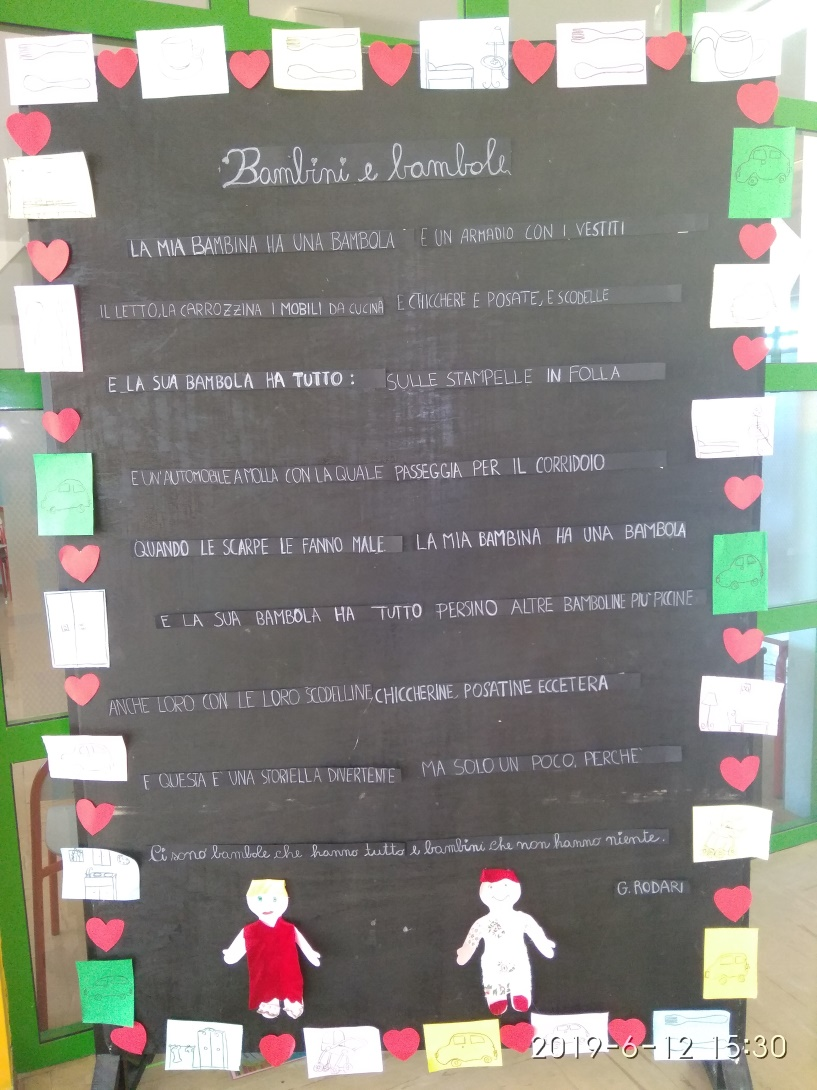 Bambini e bambole
LA MIA BAMBINA HA UNA BAMBOLA E UN ARMADIO CON I VESTITI
IL LETTO, LA CARROZZINA I MOBILI DA CUCINA E CHICCHERE E POSATE, E SCODELLE
E LA SUA BAMBOLA HA TUTTO: SULLE STAMPELLE IN FOLLA
E UN'AUTOMOBILE A MOLLA CON LA QUALE PASSEGGIA PER IL CORRIDOIO
QUANDO LE SCARPE LE FANNO MALE LA MIA BAMBINA HA UNA BAMBOLA
E LA SUA BAMBOLA HA TUTTO PERSINO ALTRE BAMBOLINE PIU' PICCINE
ANCHE LORO CON LE LORO SCODELLINE CHICCHERINE, POSATINE ECCETERA
E QUESTA E' UNA STORIELLA DIVERTENTE MA SOLO UN POCO, PERCHE'
Ci sono bambole che hanno tutto e bambini che non hanno niente.
G. RODARI
2019-6-12 15:30